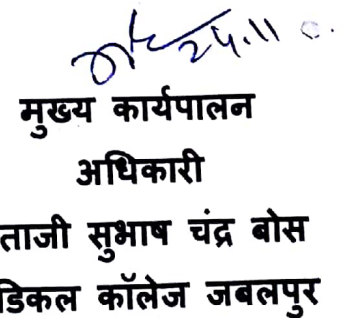 24.11
मुख्य कार्यपालन
अधिकारी
ताजी सुभाष चंद्र बोस
डिकल कॉलेज जबलपुर